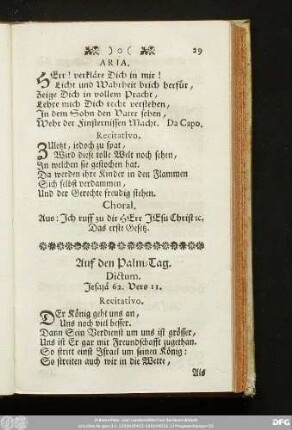 )o( 29
ARIA.
HErr! verkläre Dich in mir!
Licht und Wahrheit brich herfür,
Zeige Dich in vollem Pracht,
Lehre mich Dich recht verstehen,
In dem Sohn den Vater sehen,
Wehr der Finsternissen Macht. Da Capo.
Recitativo.
Zuletzt, iedoch zu spat,
Wird diese tolle Welt noch sehen,
In welchen sie gestochen hat.
Da werden ihre Kinder in den Flammen
Sich selbst verdammen,
Und der Gerechte freudig stehen.
Choral.
Aus: Ich ruff zu dir HErr JEsu Christ ꝛc.
Das erste Gesetz.
Auf den Palm-Tag.
Dictum.
Jesajä 62. Vers 11.
Recitativo.
DEr König geht uns an,
Uns noch viel besser.
Dann Sein Verdienst um uns ist grösser,
Uns ist Er gar mit Freundschafft zugethan.
So stritt einst Israel um seinen König:
So streiten auch wir in die Wette,
Als